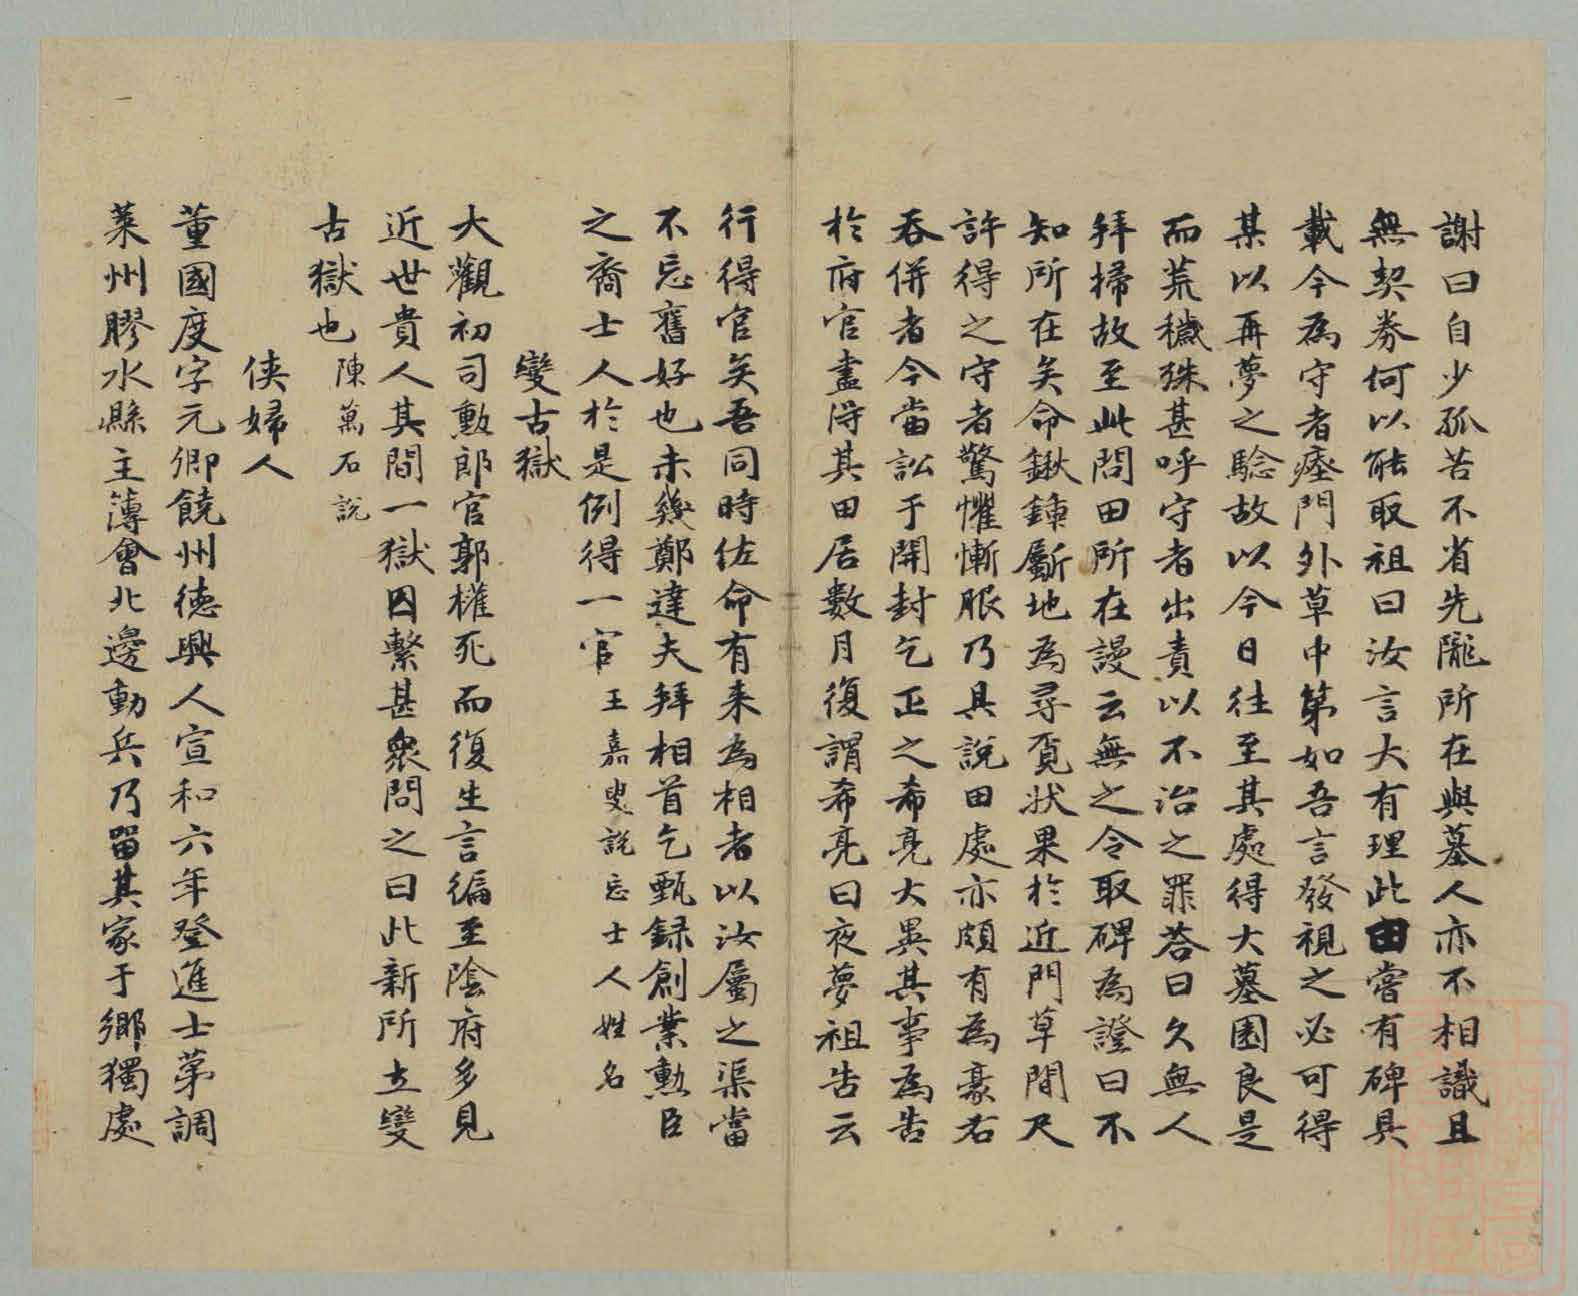 謝曰自少孤苦不省先隴所在與墓人亦不相識且
無契券何以能取祖曰汝言大有理此田嘗有碑具
載今為守者瘞門外草中第如吾言發視之必可得
某以再夢之驗故以今日往至其處得大墓園良是
而荒穢殊甚呼守者出責以不治之罪荅曰久無人
拜掃故至此問田所在謾云無之令取碑為證曰不
知所在矣命鍬鍤斸地為尋覓狀果於近門草間尺
許得之守者驚懼慚服乃具說田處亦頗有為豪右
吞併者今當訟于開封乞正之希亮大異其事為告
於府官盡得其田居數月復謂希亮曰夜夢祖告云
行得官矣吾同時佐命有来為相者以汝屬之渠當
不忘舊好也未幾鄭達夫拜相首乞甄録創業勲臣
之裔士人於是例得一官王嘉叟說忘士人姓名
變古獄
大觀初司勲郎官郭權死而復生言徧至陰府多見
近世貴人其間一獄囚繫甚衆問之曰此新所立變
古獄也陳萬石說
侠婦人
董國度字元卿饒州德興人宣和六年登進士第調
萊州膠水縣主薄會北邊動兵乃留其家于鄉獨處